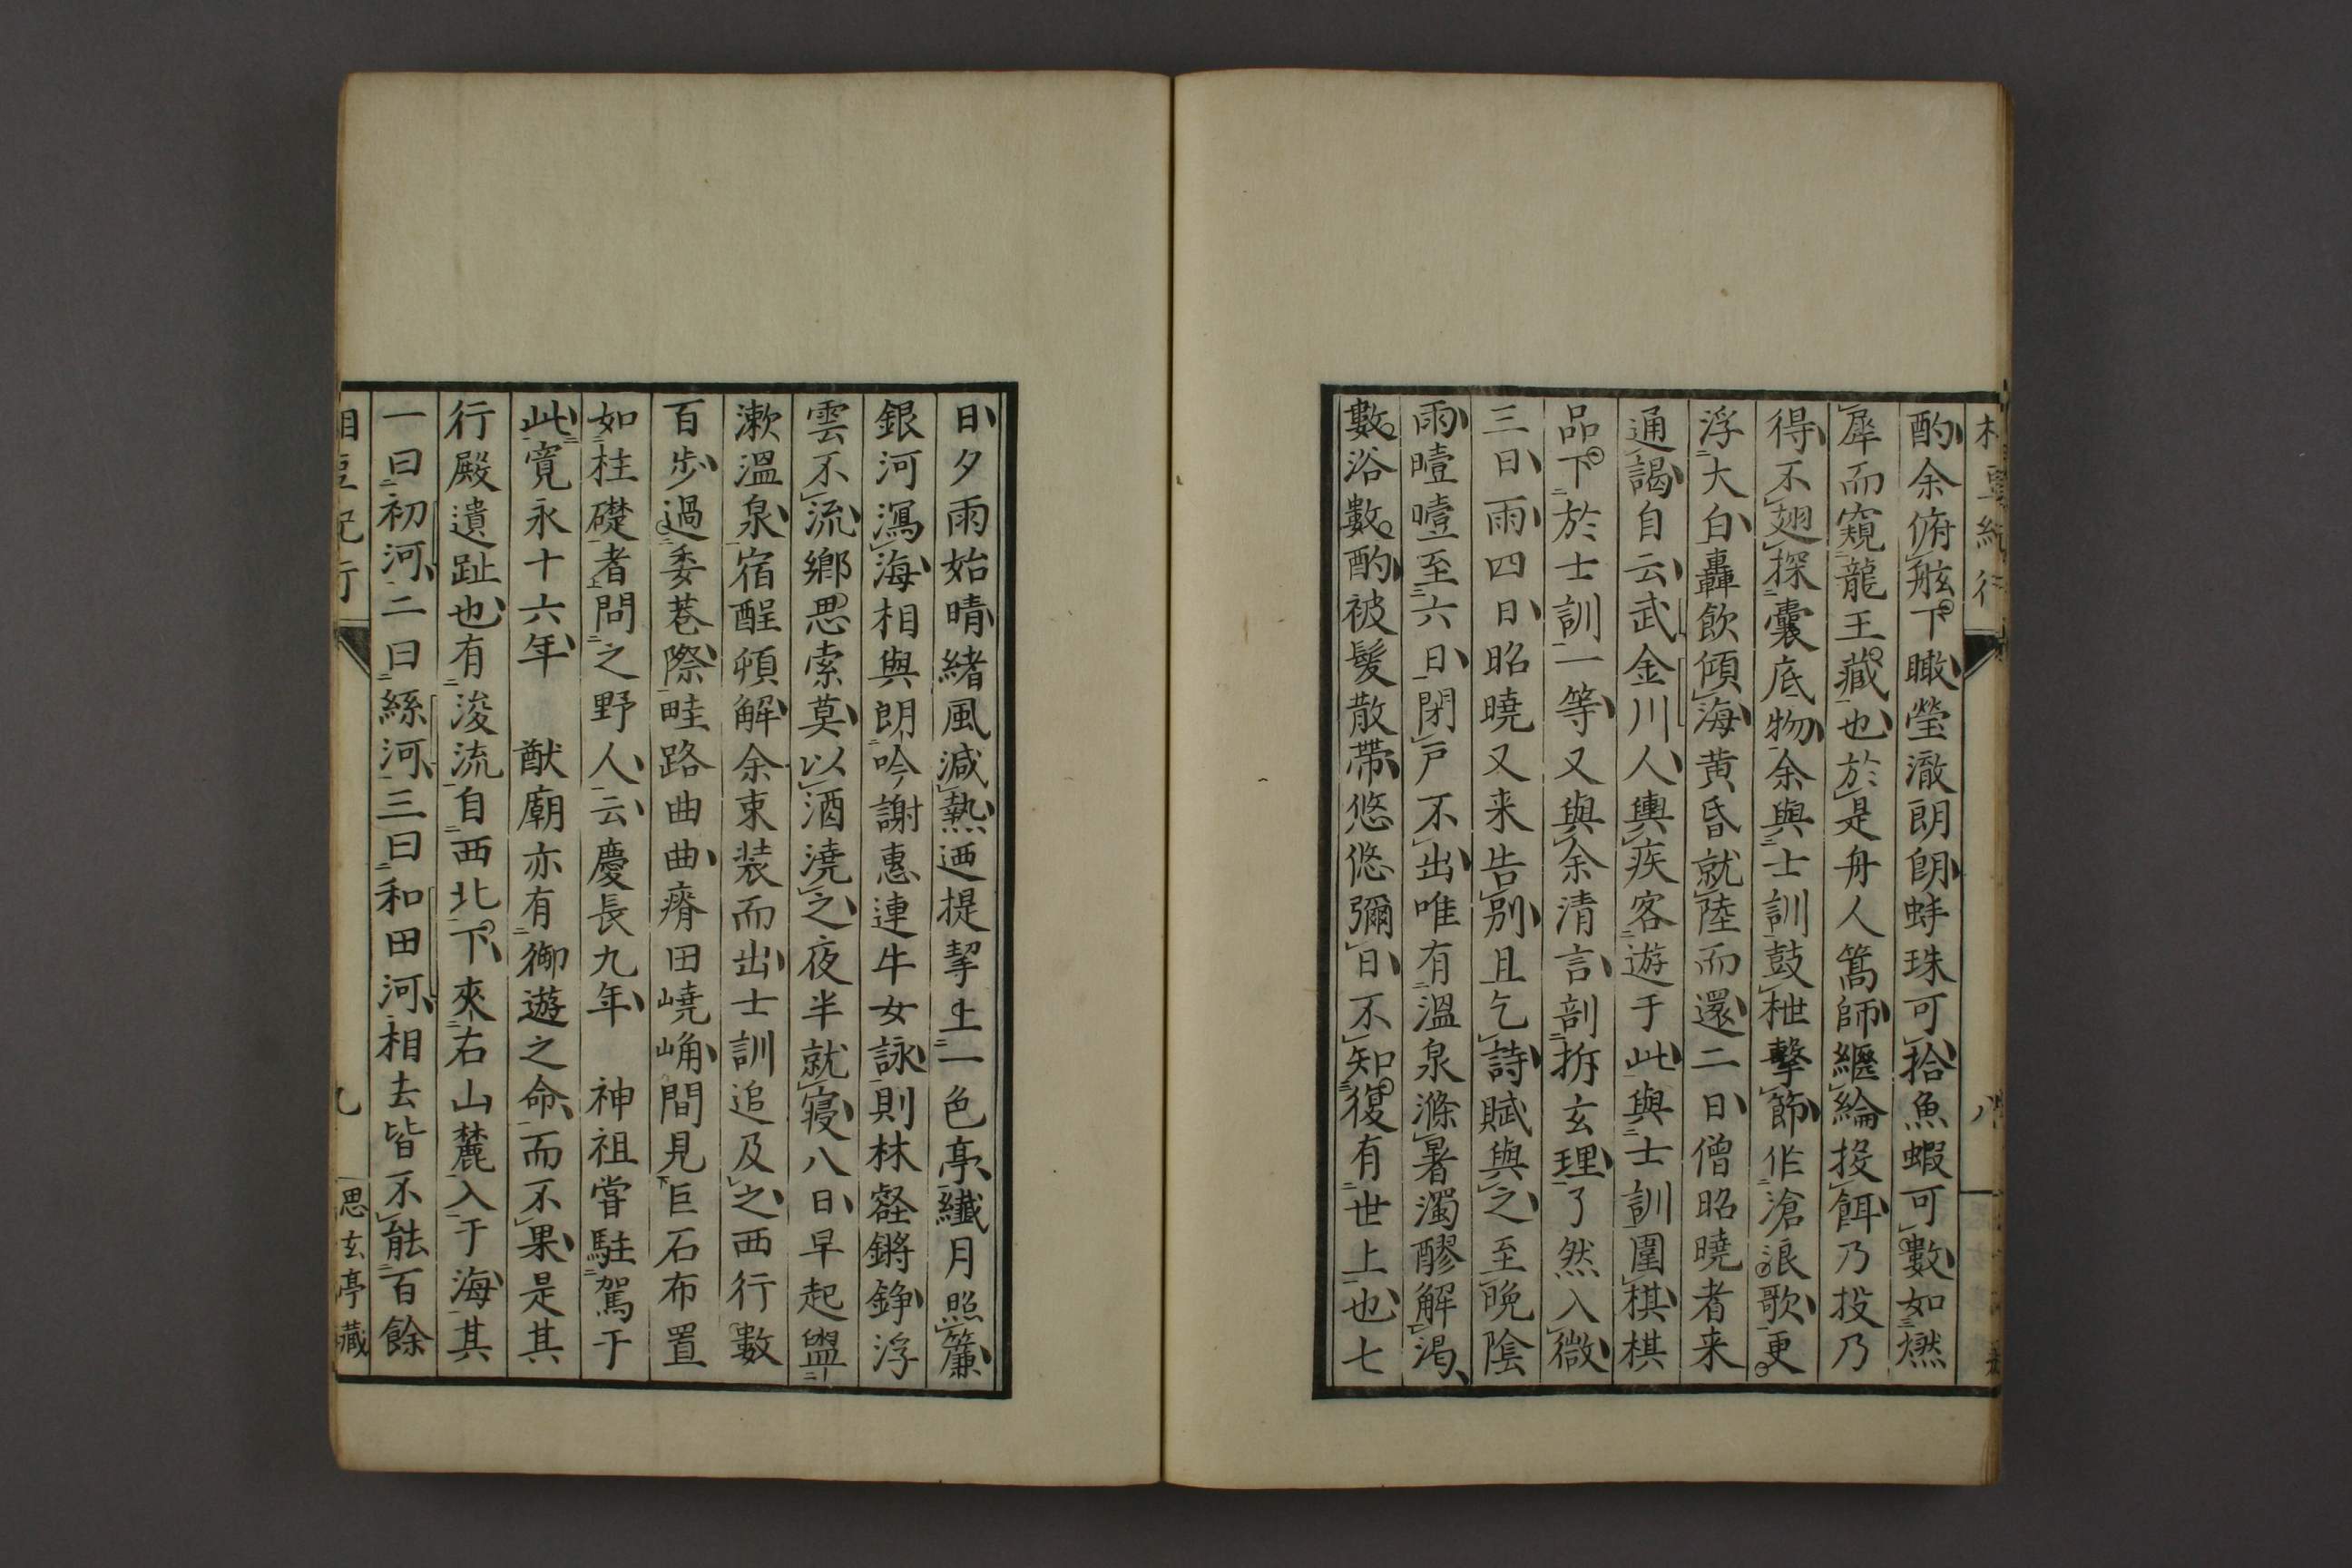 酌余俯舷下瞰瑩澈朗朗蚌珠可拾魚蝦可數如燃
犀而窺龍王藏也於是舟人篙師緪綸投餌乃投乃
得不翅探囊底物余與士訓鼓枻擊節作滄浪歌更
浮大白轟飲傾海黄昏就陸而還二日僧昭曉者来
通謁自云武金川人輿疾客遊于此與士訓圍棋棋
品下於士訓一等又與余清言剖拆玄理了然入微
三日雨四日昭曉又来告別且乞詩賦與之至晩陰
雨曀曀至六日閉戸不出唯有温泉滌暑濁醪解渇
數浴數酌被髪散帶悠悠彌日不知復有世上也七
日夕雨始晴緒風減熱迺提挈上一色亭纖月照簾
銀河瀉海相與朗吟謝惠連牛女詠則林壑鏘錚浮
雲不流鄉思索莫以酒澆之夜半就寝八日早起盥
漱溫泉宿酲頓解余束裝而出士訓追及之西行數
百歩過委巷際畦路曲曲瘠田嶢崅間見巨石布置
如柱礎者問之野人云慶長九年　神祖嘗駐駕于
此寛永十六年　猷廟亦有御遊之命而不果是其
行殿遺趾也有浚流自西北下來右山麓入于海其
一曰初河二曰絲河三曰和田河相去皆不能百餘
相豆紀行
九
思玄亭藏